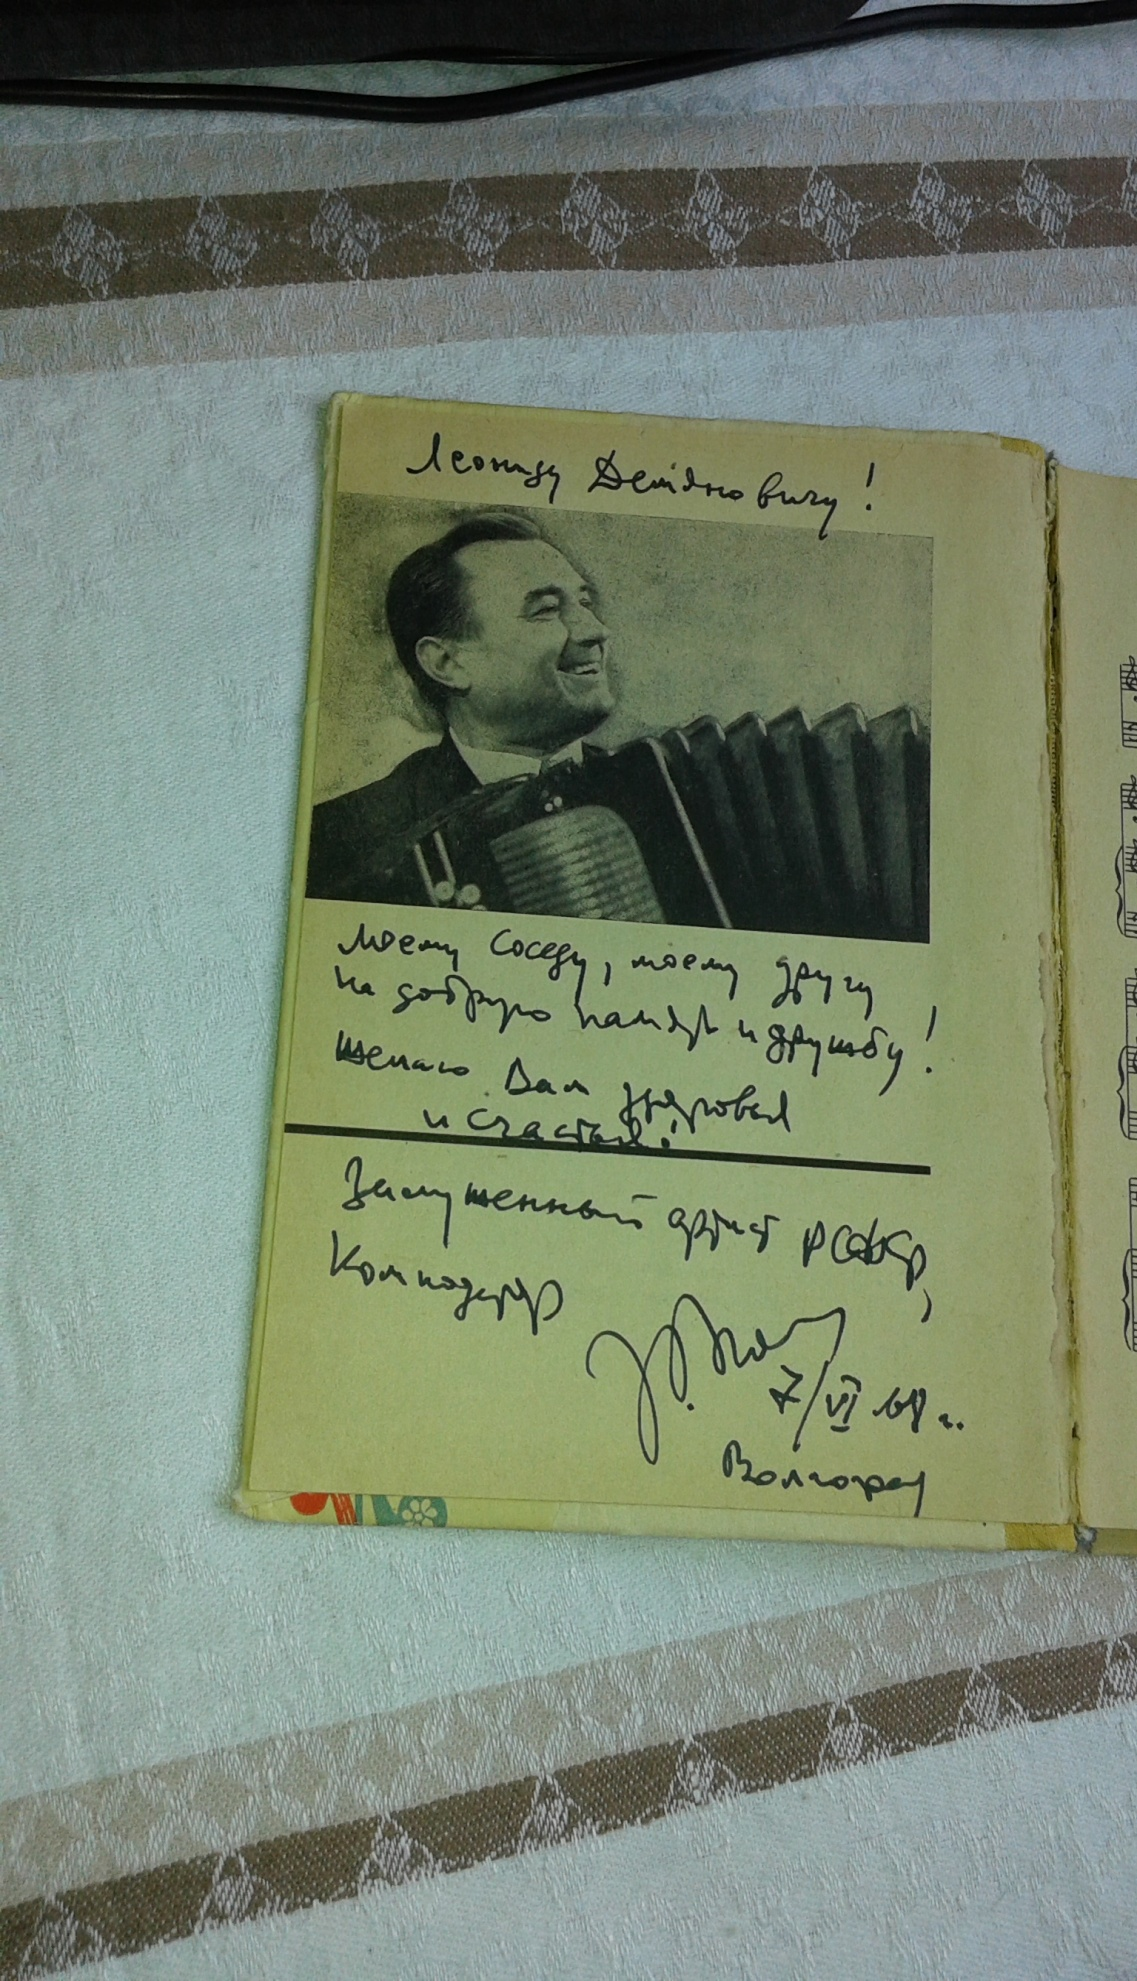 Леониду Демяновичу!
Моему соседу, моему другу
на добрую память и дружбу!
Желаю Вам здоровья
и счастья!
Заслуженный артист РСФСР,
Композитор
7/VI 68 г.
Волгоград